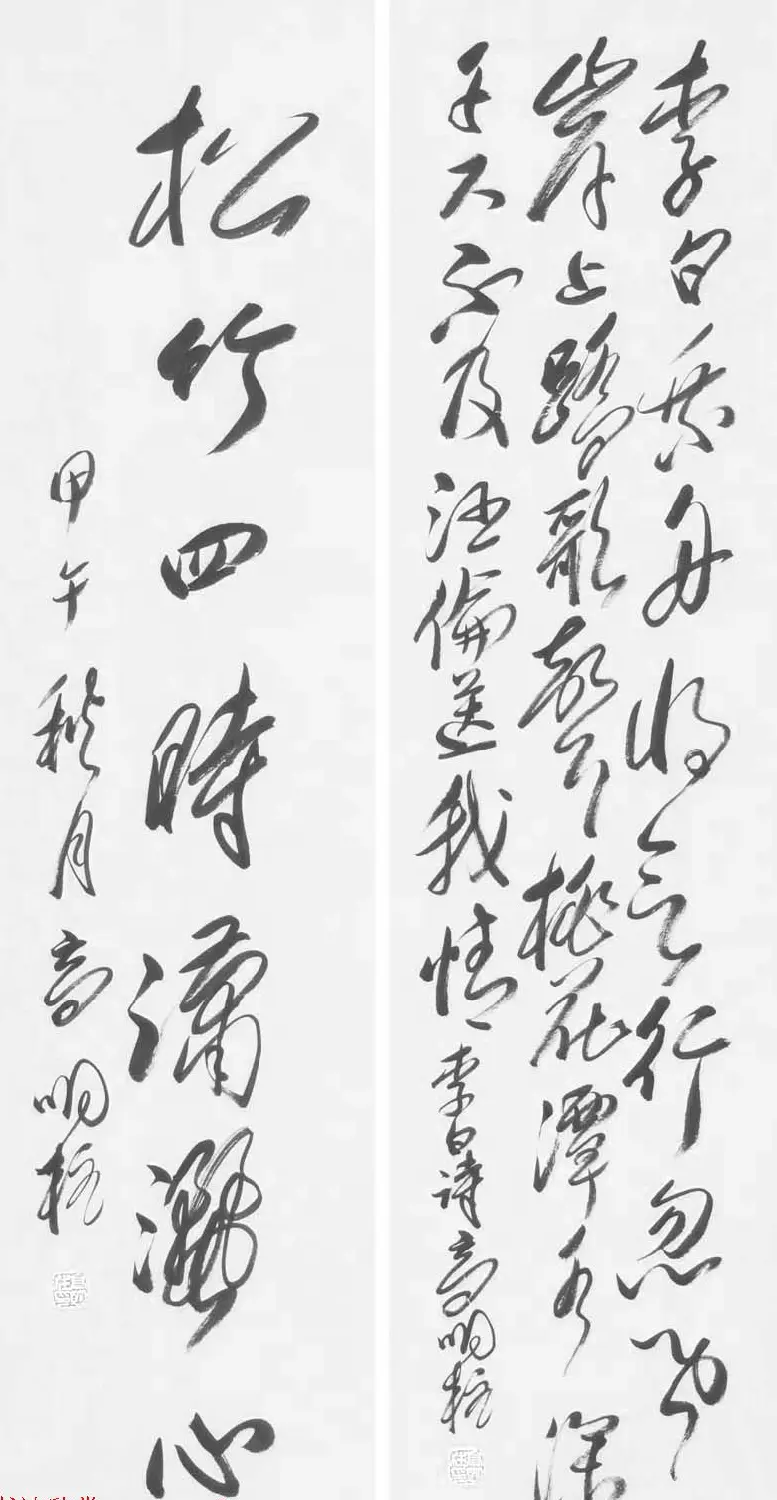 李白乘舟将欲行忽聞
岸上踏歌聲桃花潭水深
千尺不及汪倫送我情李白詩高明柱
松竹四時瀟灑心
甲午秋月高明柱